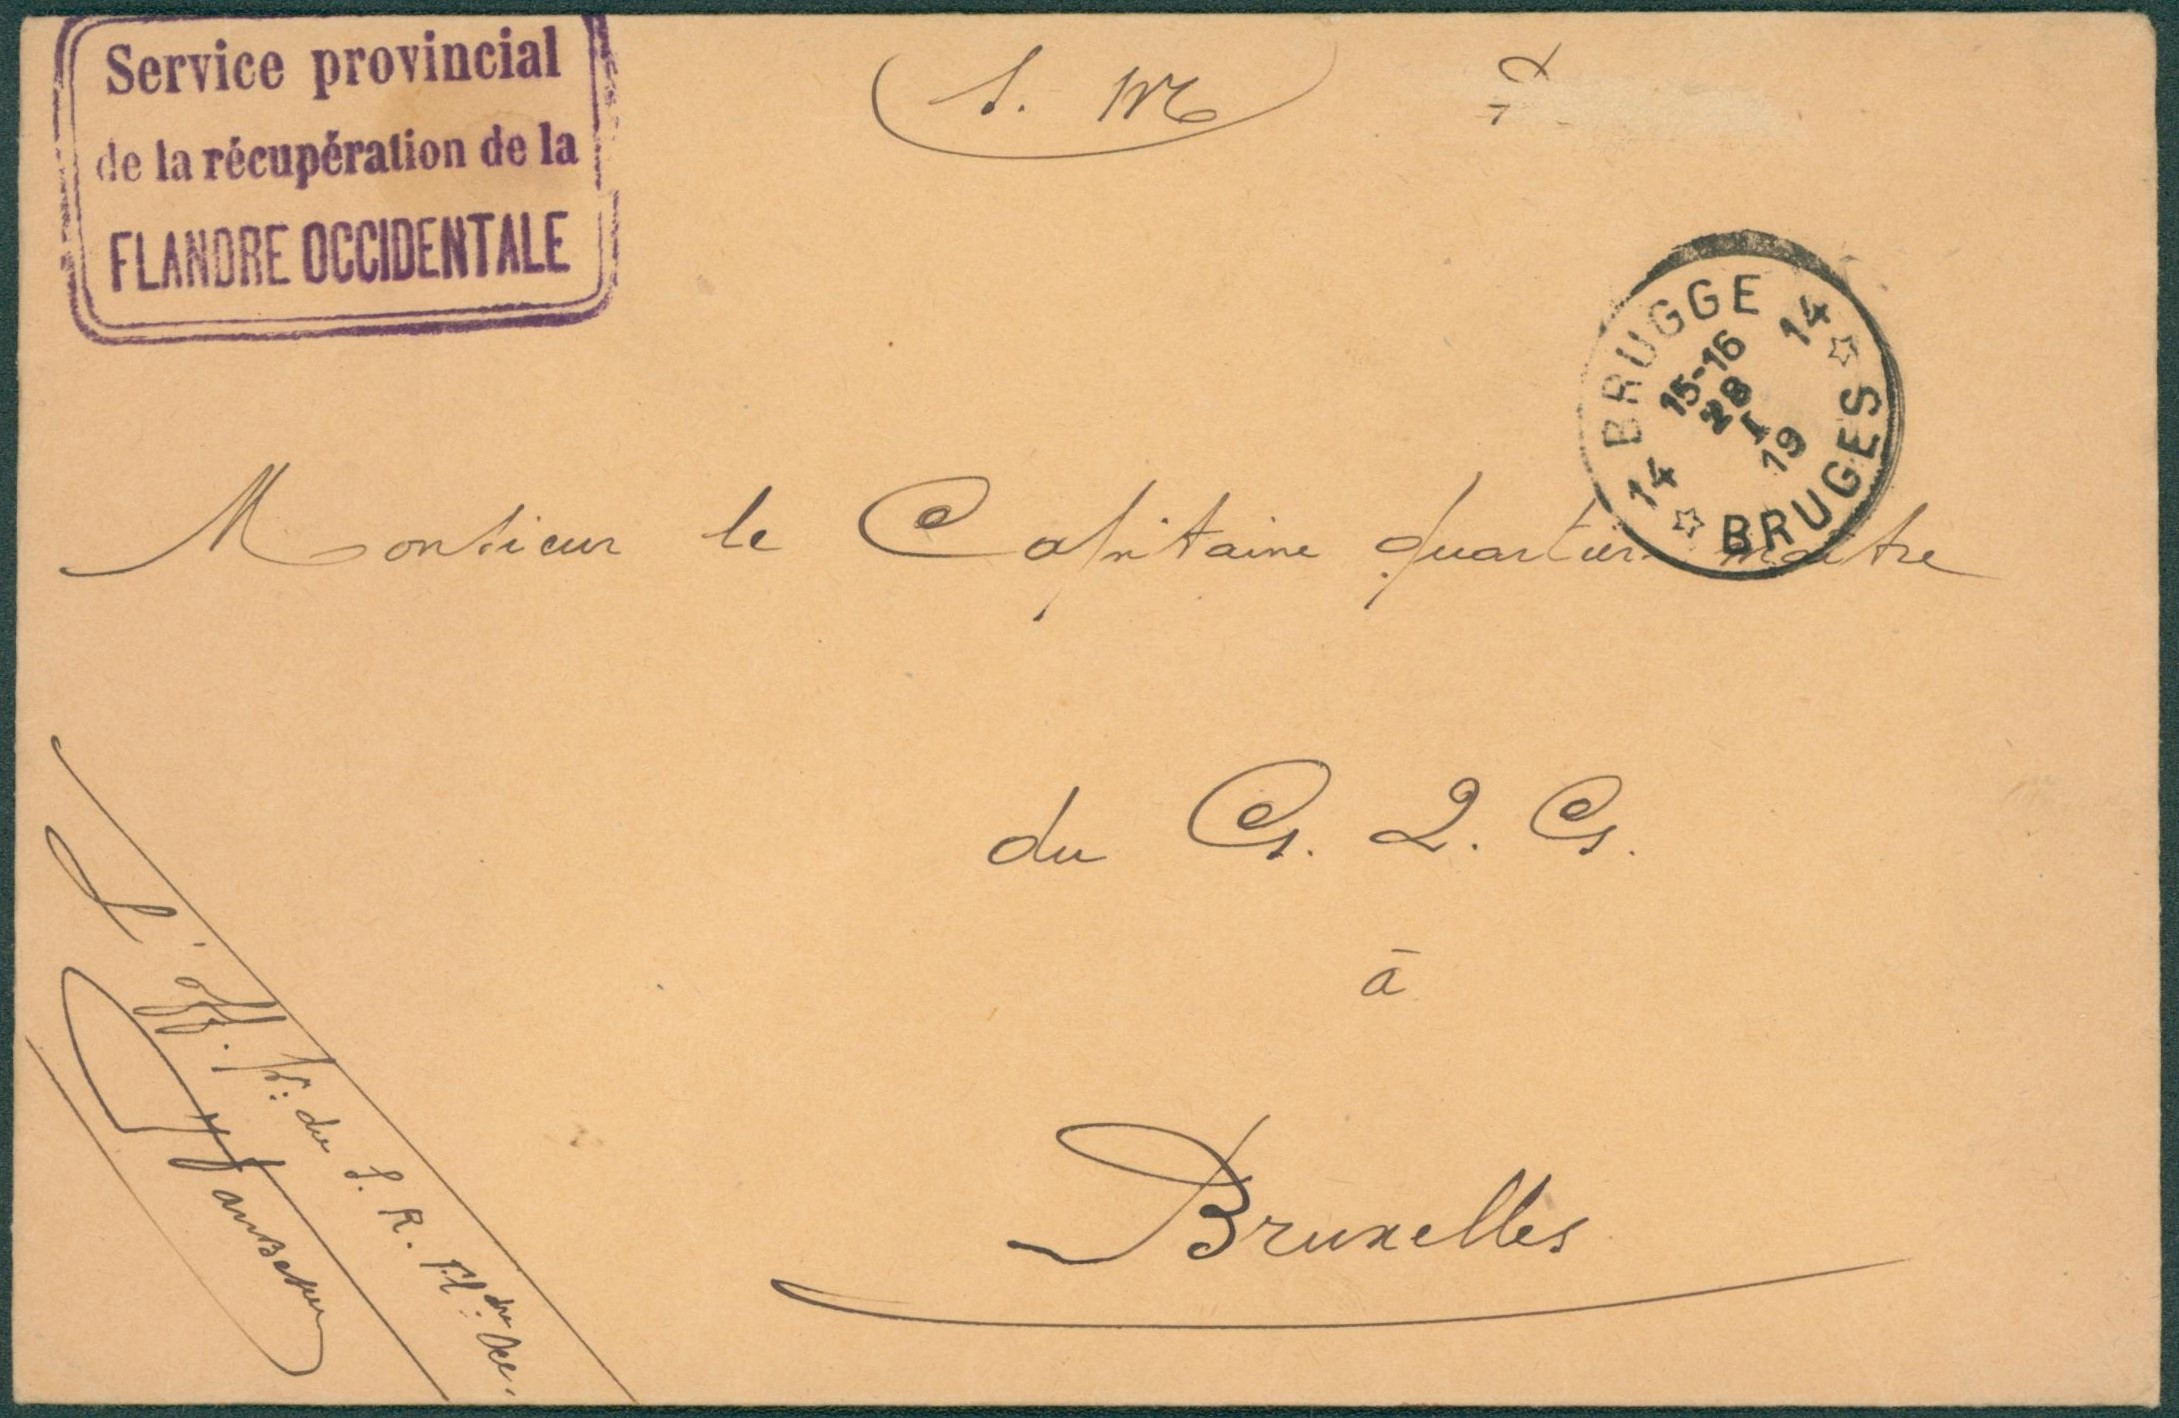 Service provincial
de la récupération de la
FLANDRE OCCIDENTALE
S. M
BRUGGE
14 14
15-16
28
I
19
BRUGES
Monsieur le Capitaine quartier maître
du G. Q. G.
à
Bruxelles
L'off. du S. R. Fl. Occ.